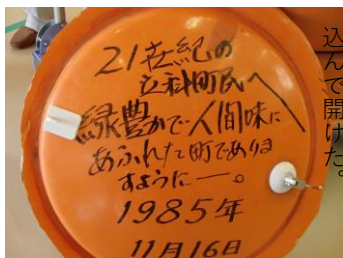 21世紀の
立科町民へ
緑豊かで人間味に
あふれた町でありま
すように―。
1985年
11月16日
込んで開けた。